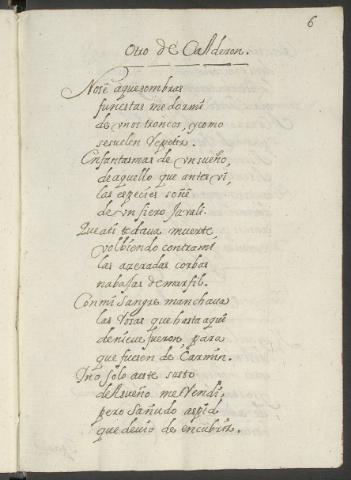 6
Otro de Callderon.
Nose aque sombras
funestas me dormi
de vnos troncos, y como
se suelen repetir
En fantasmas de vn sueño,
de aquello que antes vi,
las especies soñe
de vn fiero Javali.
Que ati te dava muerte,
volbiendo contra mi
las azeradas corbas
nabajas de marfil.
Con mi Sangre manchava
las rosas que hasta aqui
de nieve fueron, para
que fuesen de Carmin.
I no solo a este susto
del sueño me Rendi,
pero Sañudo aspid
que devio de encubrir.